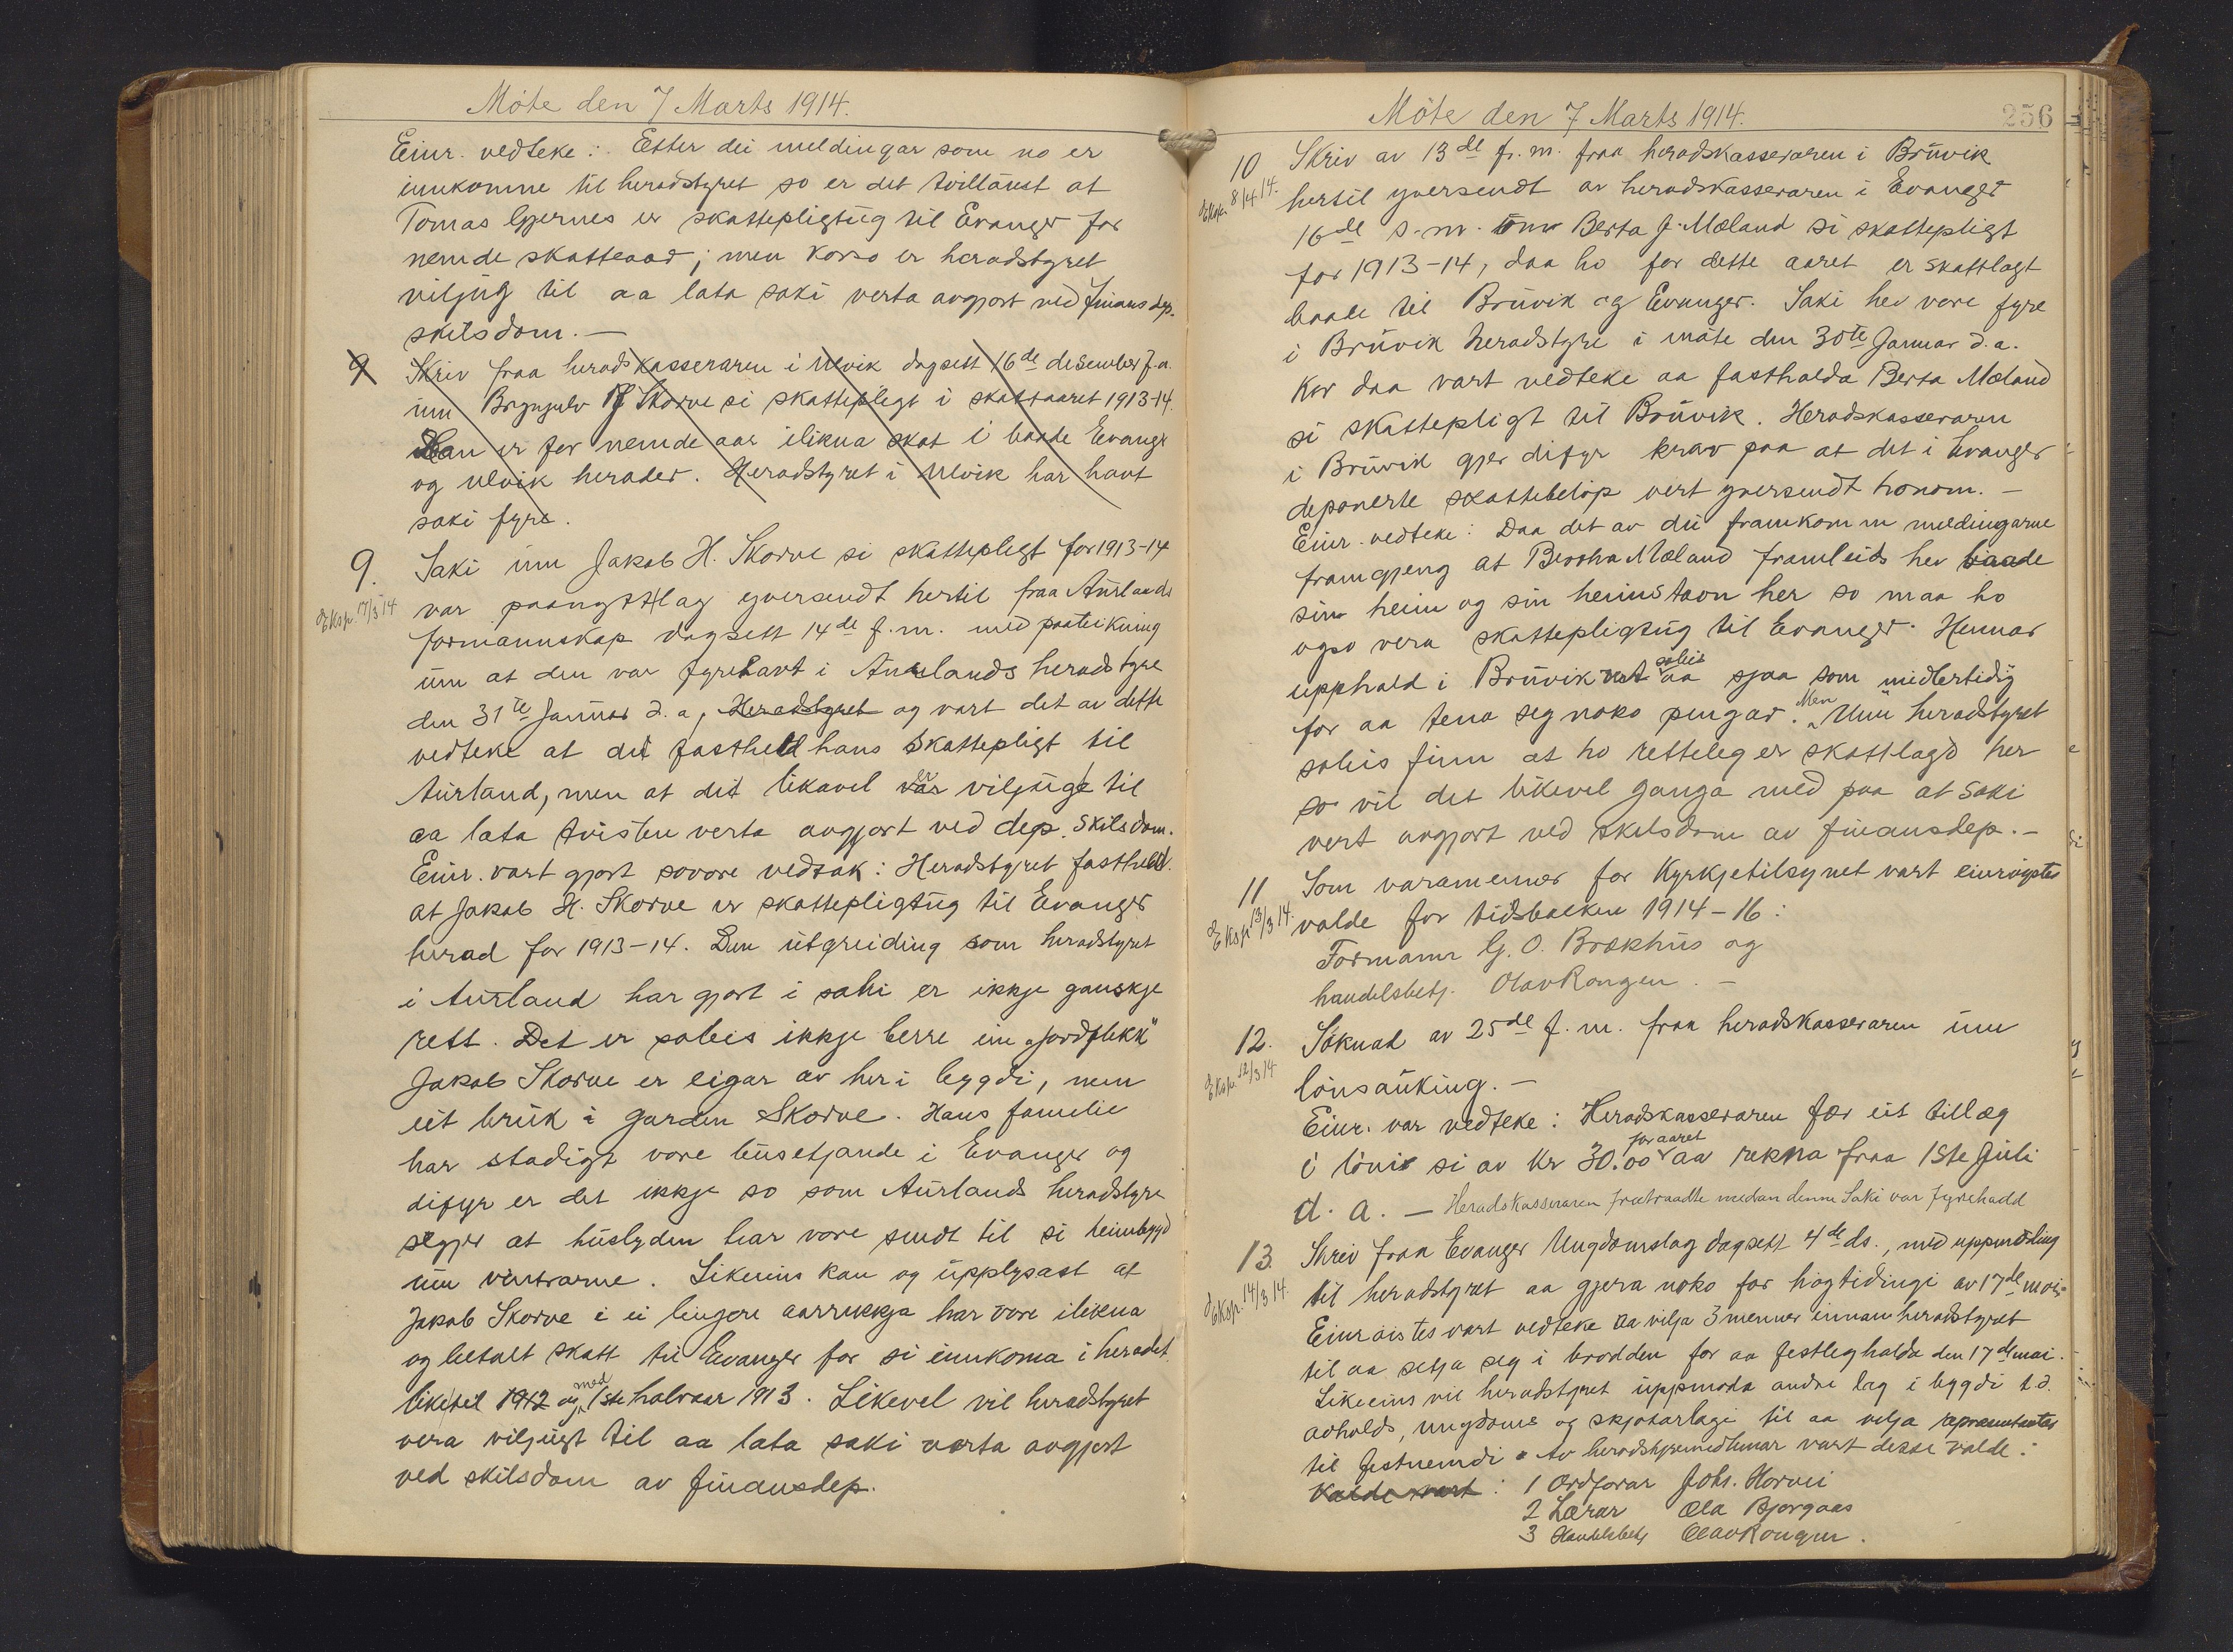 Möte den 7 Marts 1914.
Einr. vedteke: Etter dei meldingar som no er
innkomne til heradstyret so er det tvillaust at
Tomas Gjernes er skattepligtug til Evanger for
nemde skatteaar; men korso er heradstyret
viljug til aa lata saki verta avgjort ved finansdep.
skilsdom. —
9 Skriv fraa heradskasseraren i Ulvik dagsett 16de desember f.a.
um Brynjulv Skorve si skattepligt i skattaaret 1913-14.
Han er for nemde aar ilikna skat i baade Evanger
og Ulvik herader. Heradstyret i Ulvik har havt
saki fyre.
9. Saki um Jakob H. Skorve si skattepligt for 1913-14
Eksp. 17/3 14 var paanytt lag yversendt hertil fraa Aurlands
formannskap dagsett 14de f.m. med paateikning
um at den var fyrehavt i Aurlands heradstyre
den 31te Januar d.a, Heradstyret og vart det av dette
vedteke at det fastheld hans skattepligt til
Aurland, men at det likavel var er viljuge til
aa lata tvisten verta avgjort ved dep. skilsdom.
Einr. vart gjort sovore vedtak: Heradstyret fastheld
at Jakob H. Skorve er skattepligtug til Evanger
herad for 1913-14. Den utgreiding som heradstyret
i Aurland har gjort i saki er ikkje ganskje
rett. Det er soleis ikkje berre ein "jordflekk"
Jakob Skorve er eigar av her i bygdi, men
eit bruk i garden Skorve. Hans familie
har stadigt vore busetjande i Evanger og
difyr er det ikkje so som Aurlands heradstyre
segjer at huslyden har vore sendt til si heimbygd
um vintrarne. Likeeins kan og upplysast at
Jakob Skorve i ei lengere aarrekkja har vore ilikna
og betalt skatt til Evanger for si innkoma i heradet
liketil 1912 og med 1ste halvaar 1913. Likevel vil heradstyret
vera viljugt til aa lata saki verta avgjort
ved skilsdom av finansdep.
Möte den 7 Marts 1914.
256
10 Skriv av 13de f.m. fraa heradskasseraren i Bruvik
Eksp. 8/4 14. hertil yversendt av heradskasseraren i Evanger
16de s.m. um Berta J. Mæland si skattepligt
for 1913-14, daa ho for dette aaret er skattlagt
baade til Bruvik og Evanger. Saki hev vore fyre
i Bruvik heradstyre i möte den 30te Januar d.a.
kor daa vart vedteke aa fasthalda Berta Mæland
si skattepligt til Bruvik. Heradskasseraren
i Bruvik gjer difyr krav paa at det i Evanger
deponerte skattebelöp vert yversendt honom. —
Einr. vedteke: Daa det av dei framkomm meldingarne
framgjeng at Bertha Mæland framleids hev baade
sin heim og sin heimstavn her so maa ho
ogso vera skattepligtug til Evanger. Hennar
upphald i Bruvik soleis aa sjaa som midlertidig
for aa tena seg noko pengar. Men Um heradstyret
soleis finn at ho retteleg er skattlagd her
so vil det likevel ganga med paa at saki
vert avgjort ved skilsdom av finansdep. —
11 Som varamenner for Kyrkjetilsynet vart einröystes
Eksp. 13/3 14. valde for tidsbolken 1914-16:
Formann G. O. Brækhus og
handelsbetj. Olav Rongen. —
12. Söknad av 25de f.m. fraa heradskasseraren um
Eksp. 12/3 14 lönsauking. —
Einr. var vedteke: Heradskasseraren fær eit tillæg
i löni si av Kr 30.00 for aaret aa rekna fraa 1ste Juli
d. a. — Heradskasseraren fratraadte medan denne Saki var fyrehadd
13. Skriv fraa Evanger Ungdomslag dagsett 4de ds., med uppmoding
Eksp. 14/3 14. til heradstyret aa gjera noko for högtidingi av 17de mai.
Einröistes vart vedteke aa velja 3 menner innan heradstyret
til aa setja seg i brodden for aa festleg halda den 17de mai.
Likeeins vil heradstyret uppmoda andre lag i bygdi t.d.
avholds, ungdoms og skjotarlagi til aa velja representantar
til festnemdi. Av heradstyremedlemar vart desse valde:
Valde vart: 1 Ordförar Johs. Horvei
2 Lærar Ola Bjørgaas
3 Handelsbetj Olav Rongen.